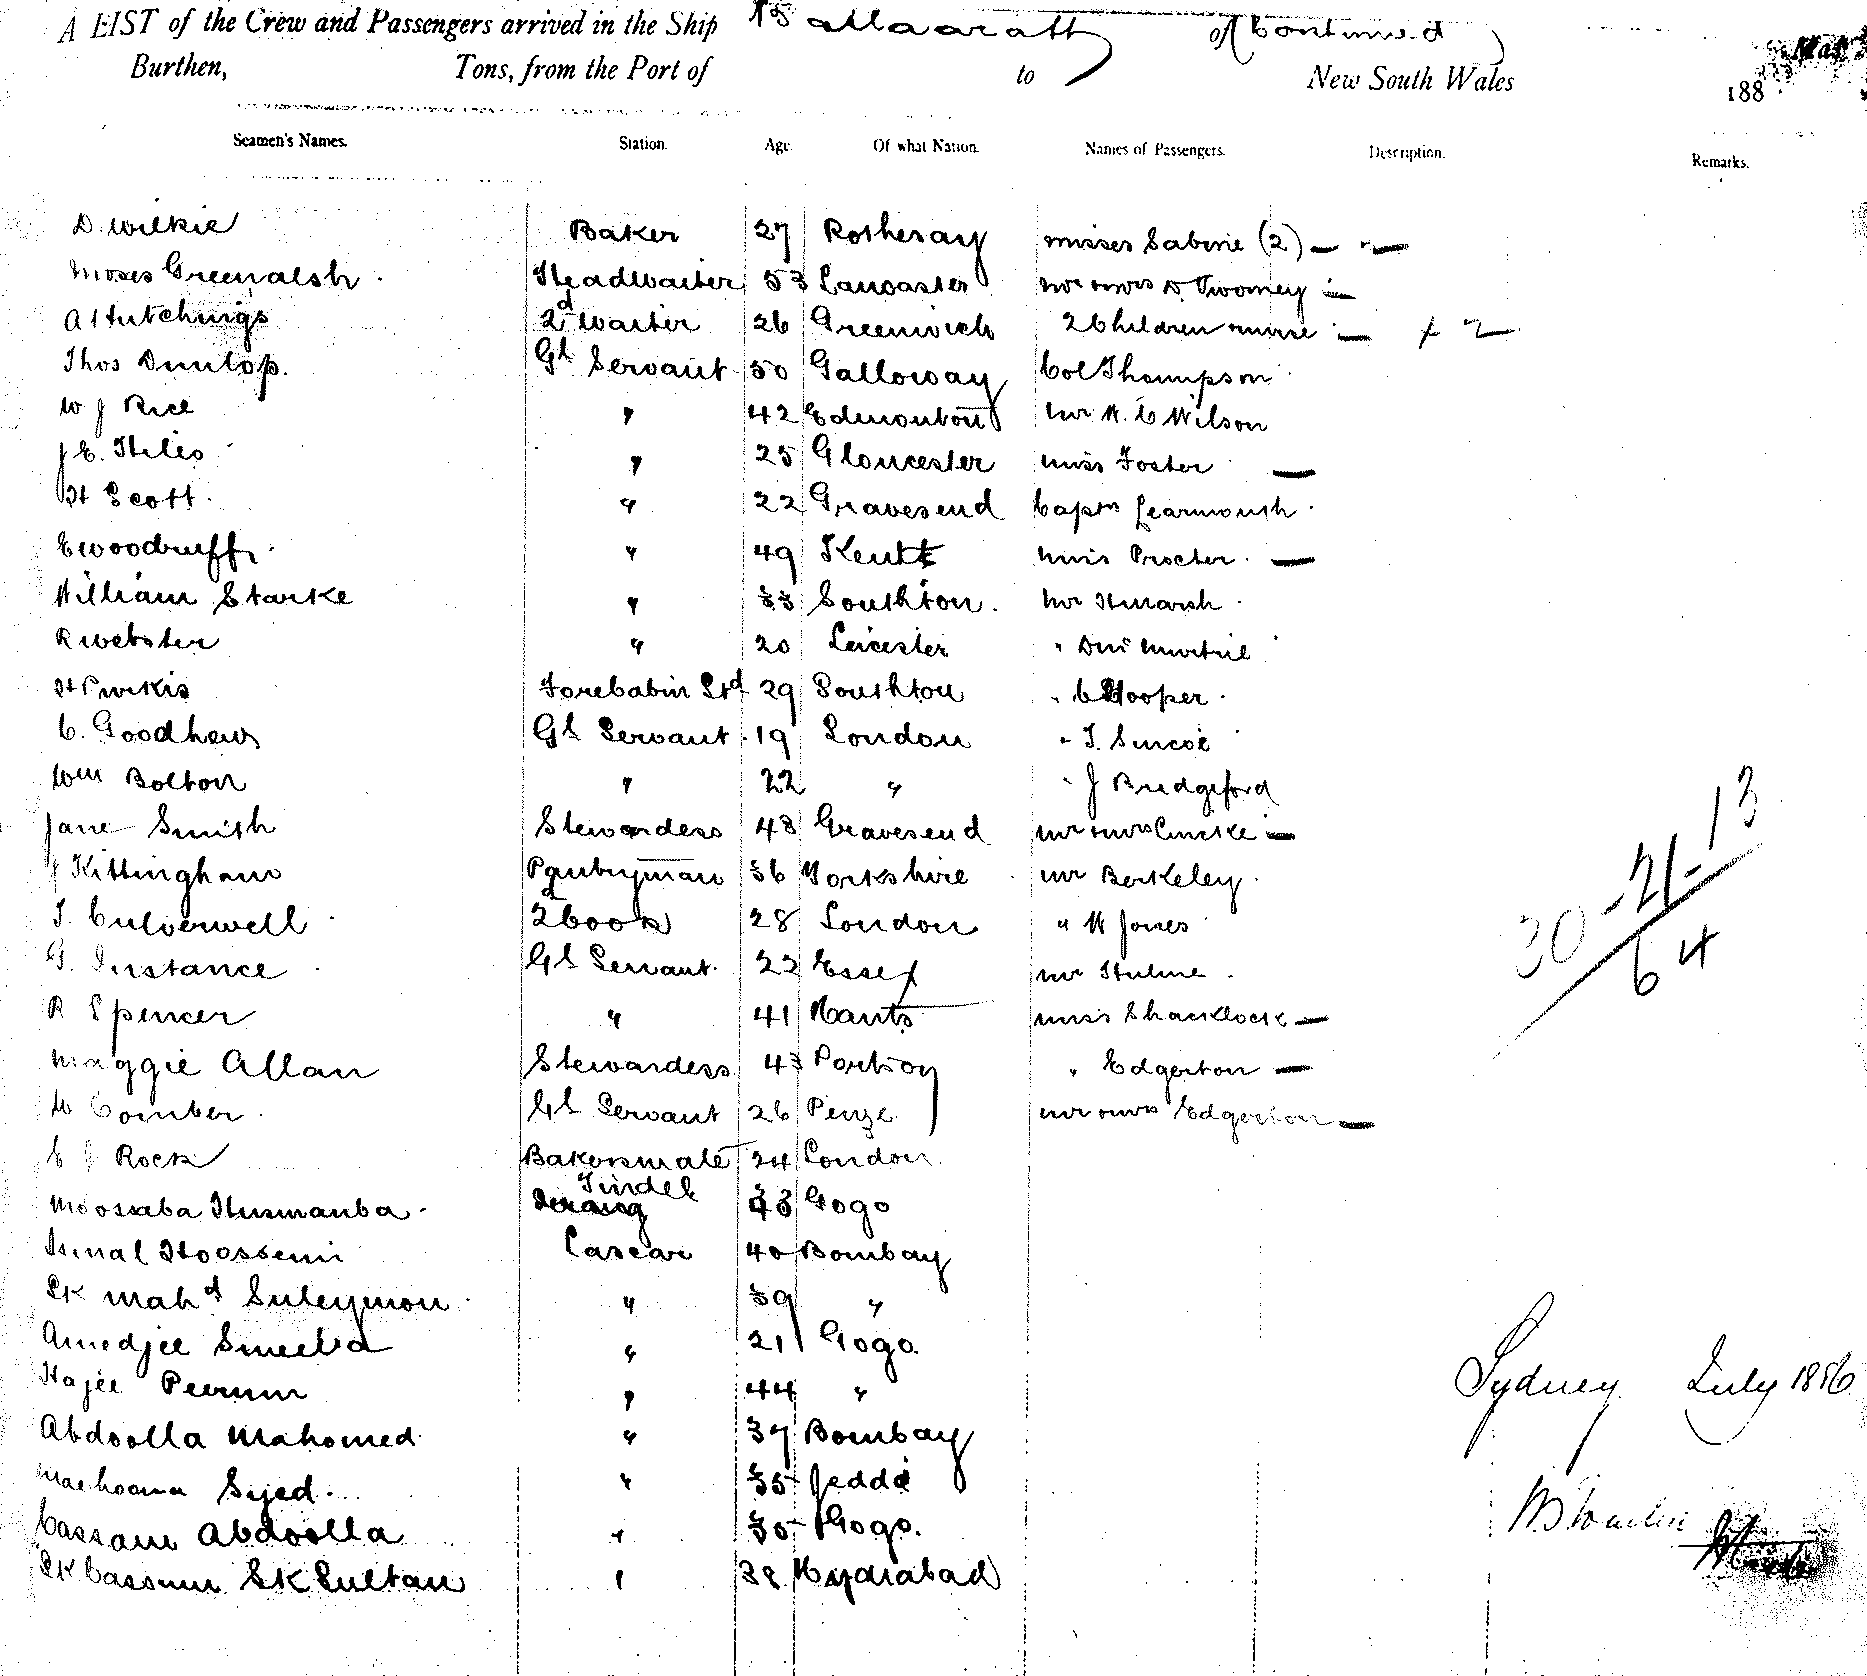 A LIST of the Crew and Passengers arrived in the Ship Ballaaratt of Continued
Burthen, Tons, from the Port of to New South Wales 188
Seamen's Names. Station. Age. Of what Nation. Names of Passengers. Description. Remarks.
D. Wilkie Baker 27 Rothesay Misses Sabine (2) — " —
Moses Greenalsh Headwaiter 53 Lancaster Mr & Mrs D Twomey —
A Hutchings 2d Waiter 26 Greenwich 2 Children & nurse — + 2 —
Thos Dunlop. Gl Servant 50 Galloway Col Thompson
W J Rice " 42 Edmonton Mr W. C Wilson
J E. Hiles " 25 Gloucester Miss Foster —
H Scott. " 22 Gravesend Captn Learmonth
E Woodruff " 49 Kent Miss Procter —
William Starke " 33 Southton. Mr H Marsh
R Webster " 20 Leicester "
H Purkis Forecabin Std 29 Southton " C Hooper
C. Goodhew Gl Servant 19 London " T. Simcoe
Wm Bolton " 22 " " J Bridgeford
Jane Smith Stewardess 48 Gravesend Mr & Mrs —
J Kittingham Pantryman 36 Yorkshire Mr Berkeley
T. Culverwell 2d Cook 28 London " W Jones
G. Instance Gl Servant 22 Essex Mr Hulme
R Spencer " 41 Hants Miss Shacklock —
Maggie Allan Stewardess 43 Portsoy " Edgerton —
W Comber Gl Servant 26 Penge Mr & Mrs Edgerton —
E J Rock Bakersmate 24 London
Moosaba Husmanba Tindel 33 Gogo
Ismal Hoossein Lascar 40 Bombay
Sk Mahd Suleymon " 39 "
Amedjee Smeeba " 21 Gogo.
Hajee Peerun " 44 "
Abdoolla Mahomed " 37 Bombay
Syed " 35 Jedda
Cassam Abdoolla " 30 Gogo.
Sk Cassum Sk Sultan " 38 Hydrabad
30 - 21 - 13
64
Sydney July 1886